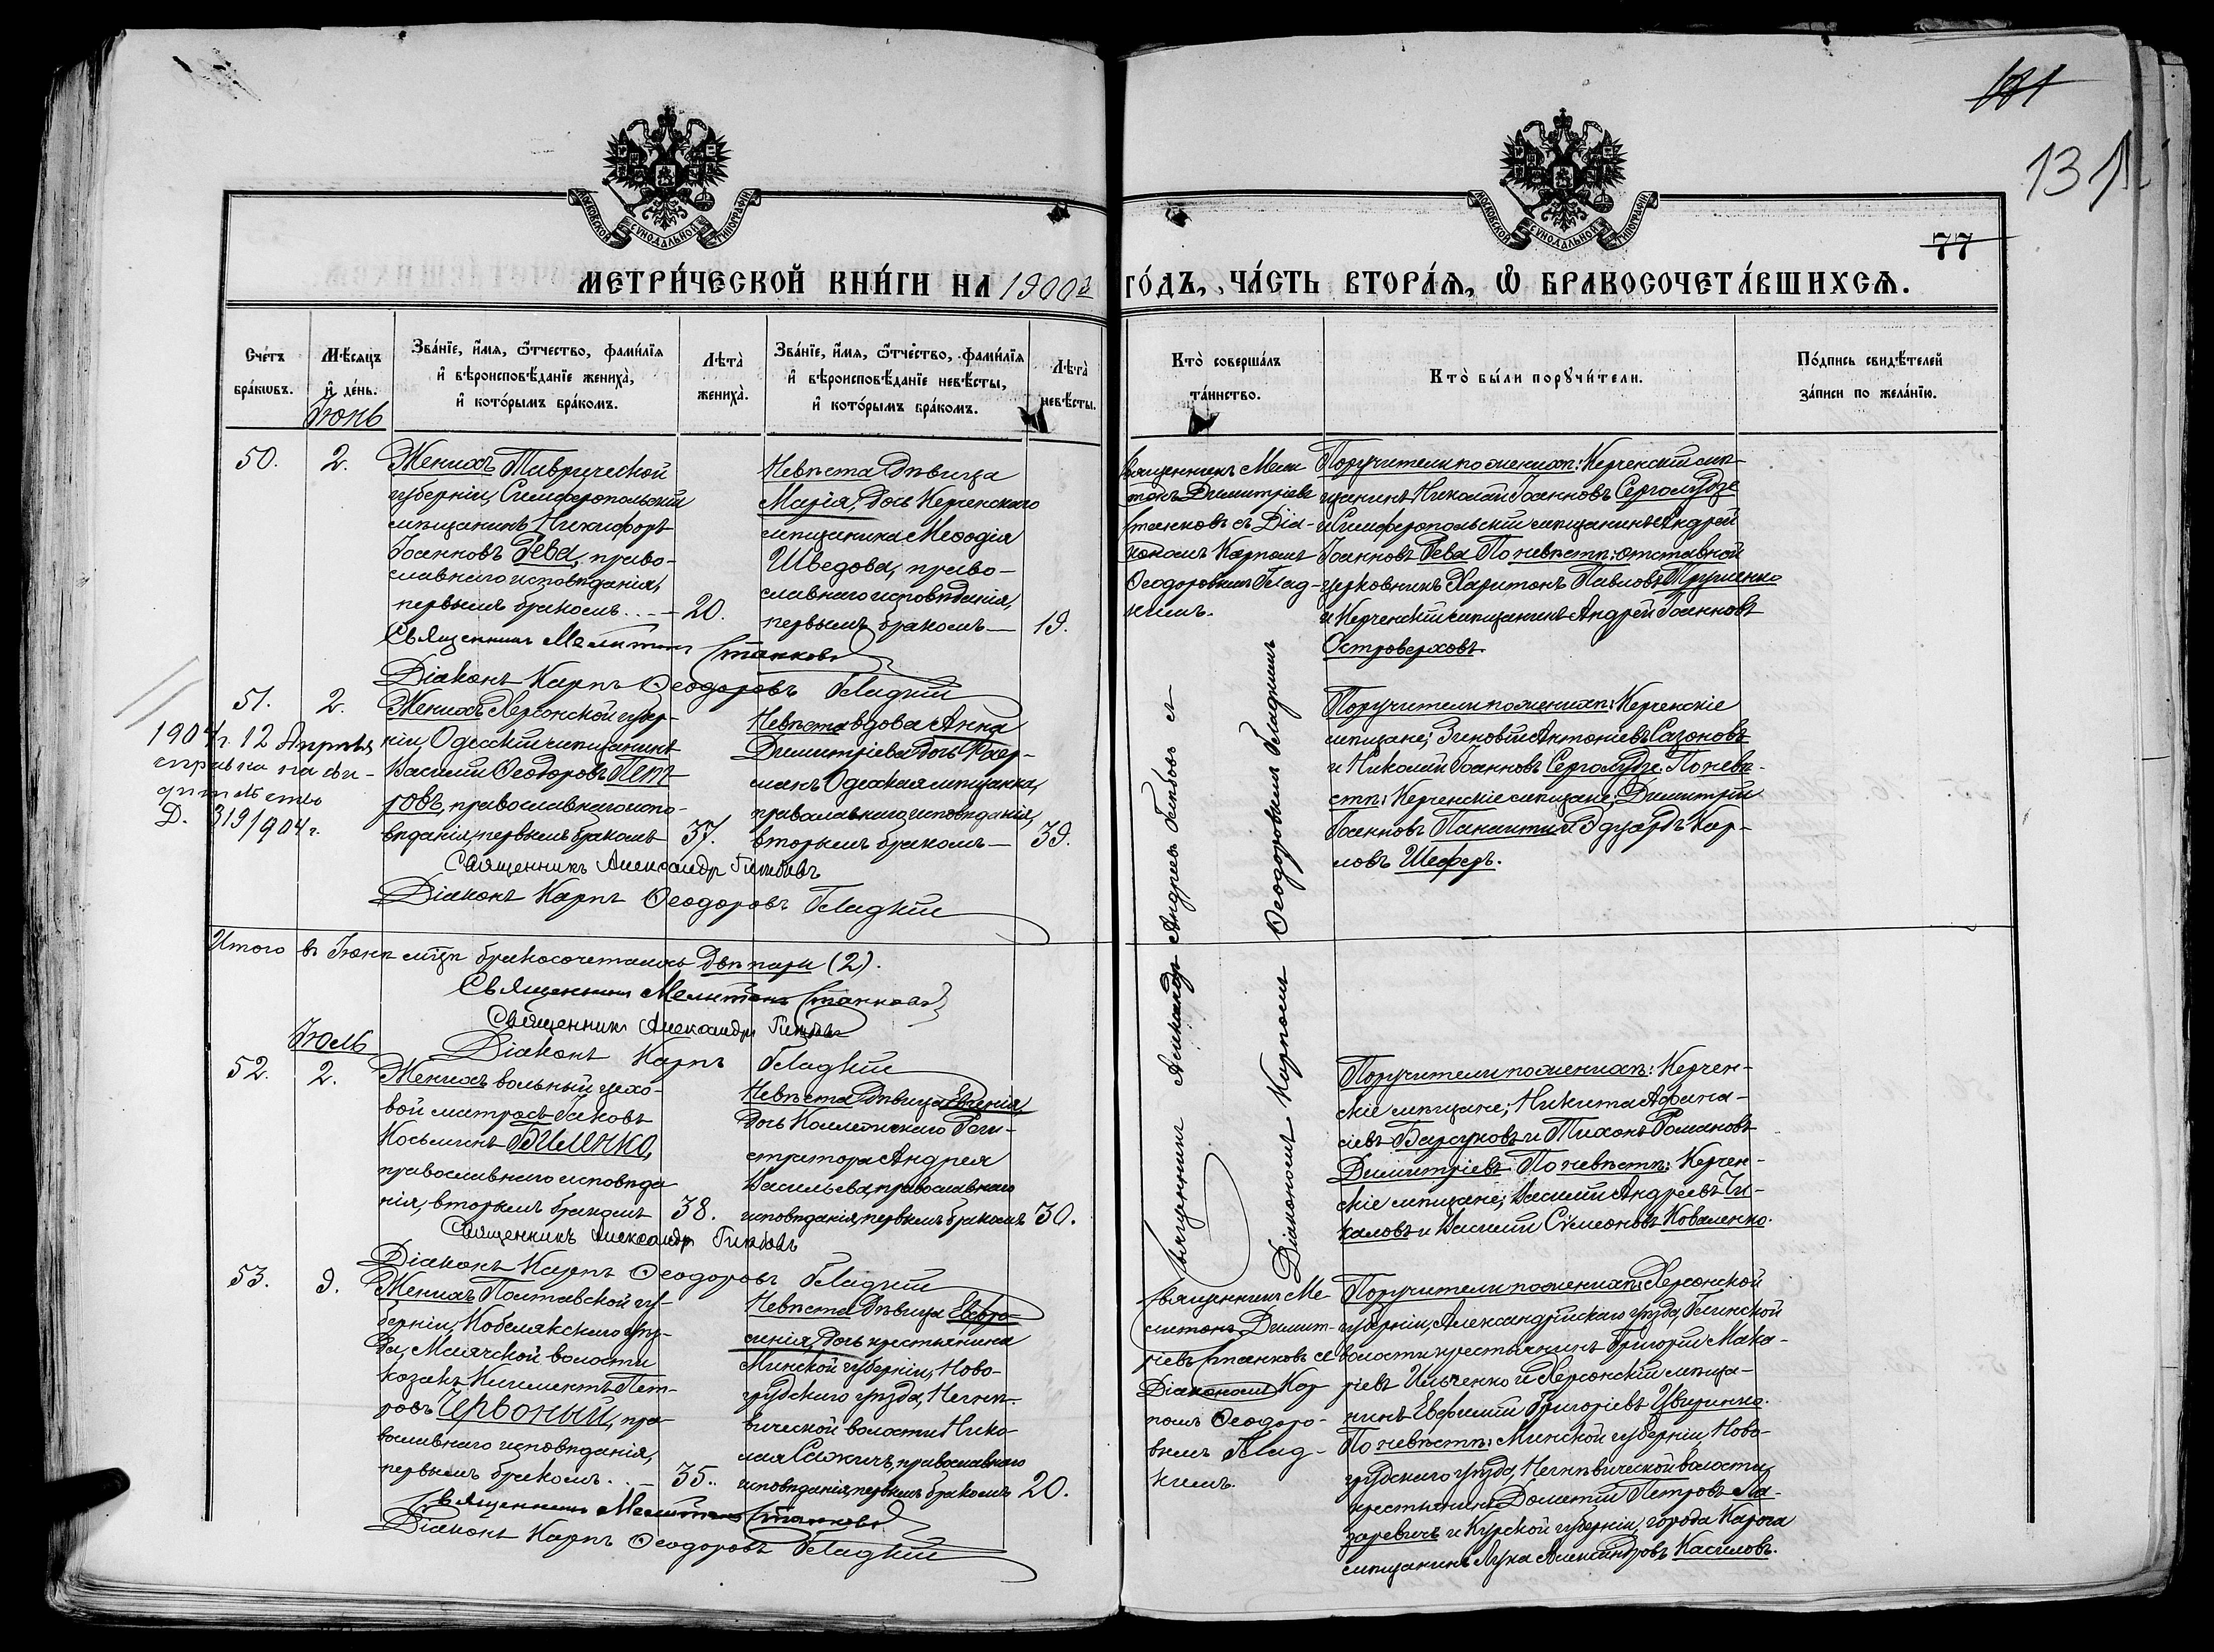 181
131
77
МОСКОВСКОЙ СУНОДАЛЬНОЙ ТИПОГРАФІИ
МОСКОВСКОЙ СУНОДАЛЬНОЙ ТИПОГРАФІИ
МЕТРИ́ЧЕСКОЙ КНИ́ГИ НА 1900й ГО́ДЪ, ЧА́СТЬ ВТОРА́Ѧ, Ѽ БРАКОСОЧЕТА́ВШИХСѦ.
Сче́тъ
бра́кѡвъ.
Мѣ́сѧцъ
и҆ де́нь.
Зва́нїе, и҆́мѧ, ѻ҆́тчество, фами́лїѧ
и҆ вѣроисповѣ́данїе жениха̀,
и҆ кото́рымъ бра́комъ.
Лѣта̀
жениха̀.
Зва́нїе, и҆́мѧ, ѻ҆́тчество, фами́лїѧ
и҆ вѣроисповѣ́данїе невѣ́сты,
и҆ кото́рымъ бра́комъ.
Лѣта̀
невѣ́сты.
Кто̀ соверша́лъ
та́инство.
Кто̀ бы́ли порꙋчи́тели.
По́дпись свидѣ́телей
за́писи по жела́нїю.
Іюнь
50.
2.
Женихъ Таврической
губерніи, Симферопольскій
мѣщанинъ Никифоръ
Іоанновъ Рева, право-
славнаго исповѣданія,
первымъ бракомъ
20.
Невѣста дѣвица
Марія, дочь Керченскаго
мѣщанина Меѳодія
Шведова, право-
славнаго исповѣданія,
первымъ бракомъ
19.
Священникъ Мели
тонъ Димитріевъ
Станковъ съ Діа-
кономъ Карпомъ
Ѳеодоровымъ Глад-
кимъ.
Поручители по женихѣ: Керченскій мѣ-
щанинъ Николай Іоанновъ Серголудзе
и Симферопольскій мѣщанинъ Андрей
Іоанновъ Рева. По невѣстѣ: отставной
церковникъ Харитонъ Павловъ
и Керченскій мѣщанинъ Андрей Іоанновъ
Островерховъ.
Священникъ Мелитонъ Станковъ
Діаконъ Карпъ Ѳеодоровъ Гладкій
51.
2.
1904г. 12 Апрѣля
справка на сви-
дѣтельство
Д. 319/904 г.
Женихъ Херсонской губер-
ніи, Одесскій мѣщанинъ
Василій Ѳеодоровъ Пет-
ровъ, православнаго испо-
вѣданія, первымъ бракомъ
37.
Невѣста вдова Анна
Димитріева дочь
Одесская мѣщанка,
православнаго исповѣданія,
вторымъ бракомъ
39.
Священникъ Александръ Андреевъ Гирбовъ съ
Діакономъ Карпомъ Ѳеодоровымъ Гладкимъ
Поручители по женихѣ: Керченскіе
мѣщане; Зиновій Антоніевъ Сазоновъ
и Николай Іоанновъ Серголудзе. По невѣ-
стѣ: Керченскіе мѣщане; Димитрій
Іоанновъ и Эдуардъ Кар-
ловъ Шеферъ.
Священникъ Александръ Гирбовъ
Діаконъ Карпъ Ѳеодоровъ Гладкій
Итого въ Іюнѣ мѣцѣ бракосочеталось двѣ пары (2).
Священникъ Мелитонъ Станковъ
Священникъ Александръ Гирбовъ
Діаконъ Карпъ Гладкій
Іюль
52.
2.
Женихъ вольный цехо-
вой матросъ Іаковъ
Косьминъ Биленко,
православнаго исповѣда
нія, вторымъ бракомъ
38.
Невѣста дѣвица Евгенія
дочь Коллежскаго Реги-
стратора Андрея
Васильева, православнаго
исповѣданія, первымъ бракомъ
30.
Поручители по женихѣ: Керчен-
скіе мѣщане; Никита Аѳана-
сіевъ Барсуковъ и Тихонъ Романовъ
Димитріевъ. По невѣстѣ: Керчен-
скіе мѣщане; Василій Андреевъ Чи-
каловъ и Василій Сѵмеоновъ Коваленко.
Священникъ Александръ Гирбовъ
Діаконъ Карпъ Ѳеодоровъ Гладкій
53.
9.
Женихъ Полтавской гу-
берніи, Кобелякскаго уѣз-
да, Маячской волости
козакъ Климентъ Пет-
ровъ Червоный, пра-
вославнаго исповѣданія,
первымъ бракомъ
35.
Невѣста дѣвица Евфро-
синія, дочь крестьянина
Минской губерніи, Ново-
грудскаго уѣзда, Негнѣ-
вической волости Нико-
лая Сажичъ, православнаго
исповѣданія, первымъ бракомъ
20.
Священникъ Ме-
литонъ Димит-
ріевъ Станковъ съ
Діакономъ Кар
помъ Ѳеодоро-
вымъ Глад-
кимъ.
Поручители по женихѣ: Херсонской
губерніи, Александрійскаго уѣзда, Глинской
волости крестьянинъ Григорій Мака-
ріевъ Ильченко и Херсонскій мѣща-
нинъ Евфимій Григоріевъ Цвиринко.
По невѣстѣ: Минской губерніи, Ново-
грудскаго уѣзда, Негнѣвической волости,
крестьянинъ Дометій Петровъ Ла-
заревичъ и Курской губерніи, города Карочи
мѣщанинъ Лука Александровъ Касиловъ.
Священникъ Мелитонъ Станковъ
Діаконъ Карпъ Ѳеодоровъ Гладкій